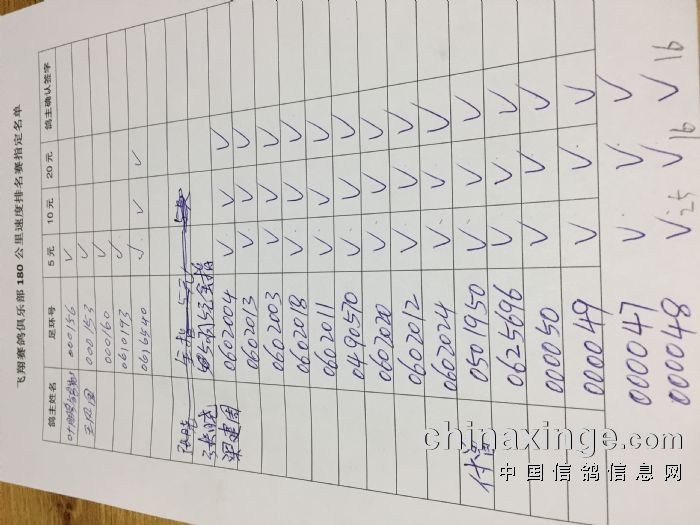 飞翔赛鸽俱乐部180公里速度排名赛指定名单
鸽主姓名 足环号 5元 10元 20元 鸽主确认签字
000156 √
王凤国 000153 √
000160 √
0610193 √
0616540 √ √ √
张晓
梁建国 0602004 √ √ √
0602013 √ √ √
0602003 √ √ √
0602018 √ √ √
0602011 √ √ √
0490570 √ √ √
0602020 √ √ √
0602012 √ √ √
0602024 √ √ √
0501950 √ √ √
0625696 √ √ √
000050 √ √ √
000049 √ √ √
000047 √ √ √
000048 √ √ √
25 16 16
chinaxinge.com
中国信鸽信息网